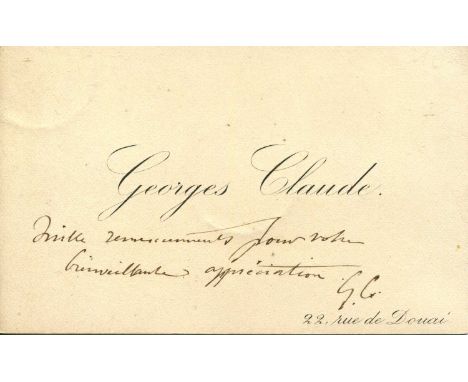 Georges Claude.
Mille remerciements pour votre
bienveillante appréciation
G. C.
22, rue de Douai